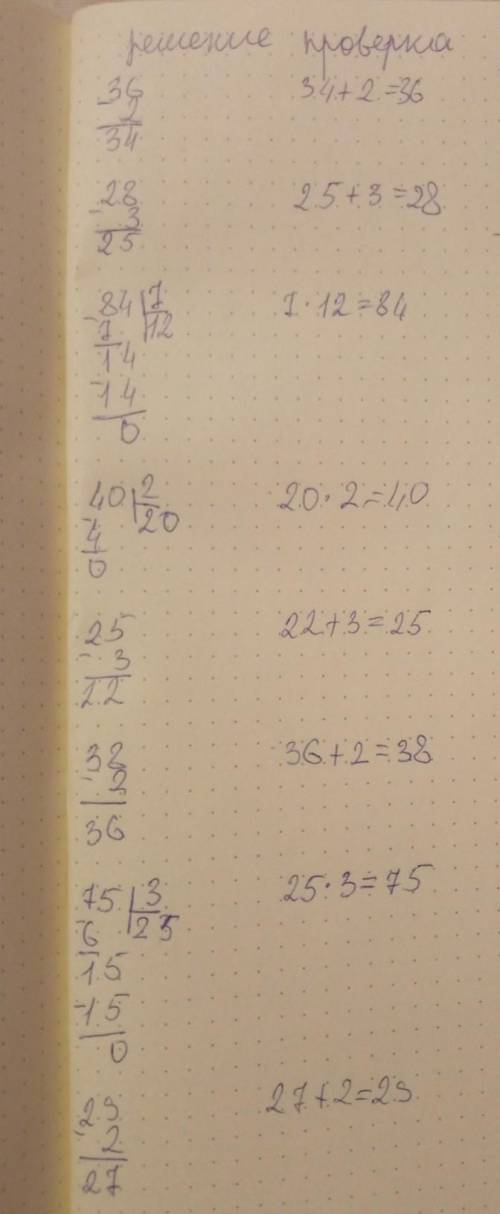 решение проверка
36 34+2=36
- 2
34
28 25+3=28
- 3
25
84 7 7·12=84
- 7 12
14
- 14
0
40 2 20·2=40
- 4 20
0
25 22+3=25
- 3
22
38 36+2=38
- 2
36
75 3 25·3=75
- 6 25
15
- 15
0
29 27+2=29
- 2
27